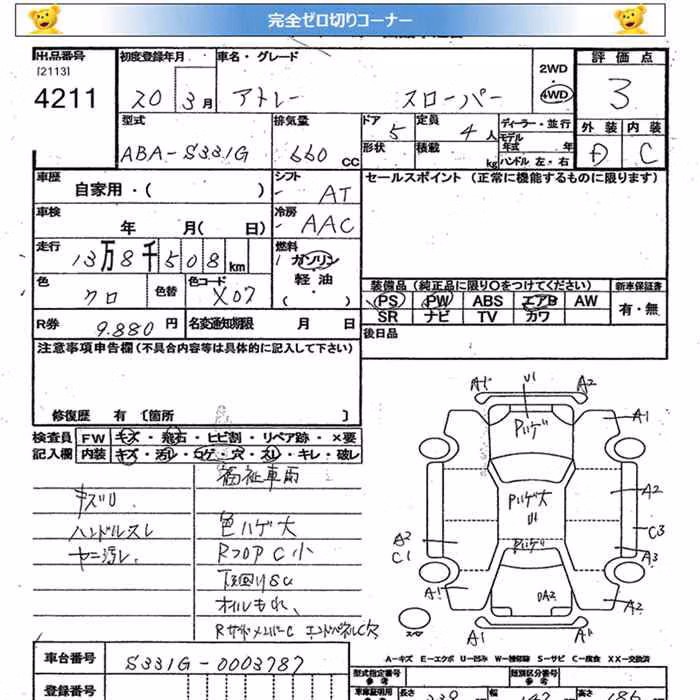 完全ゼロ切りコーナー
出品番号 初度登録年月 車名・グレード 2WD 評価点
[2113]
4211 20 3月 アトレー スローパー 4WD 3
型式 排気量 ドア 定員 ディーラー・並行 外装 内装
ABA-S331G 660 CC 5 4人 モデル年式 年 D C
形状 積載 kg ハンドル 左・右
車歴 シフト セールスポイント (正常に機能するものに限ります)
自家用・( ) AT
車検 冷房
年 月( 日) AAC
走行 燃料
13万8千508km ガソリン
色 色替 色コード 軽油 装備品 (純正品に限り○をつけてください) 新車保証書
クロ X07 ( ・ ) PS PW ABS エアB AW 有・無
R券 9.880円 名変通知期限 月 日 SR ナビ TV カワ
注意事項申告欄 (不具合内容等は具体的に記入して下さい) 後日品
修復歴 有 〔箇所 〕
検査員 FW キズ・飛石・ヒビ割・リペア跡・×要
記入欄 内装 キズ・汚レ・コゲ・穴・スレ・キレ・破レ
福祉車両
キズU
ハンドルスレ 色ハゲ大
ヤニ汚レ RフロアC小
下廻りSU
オイルもれ、
A1 U1 A2
Pハゲ A1
A2
Pハゲ大
U1
C3
A2 Pハゲ A3
C1
A1 UA2 A2
A1 A1
A-キズ E-エクボ U-凹み W-補修跡 S-サビ C-腐食 XX-交換済
車台番号 S331G-0003787 型式指定番号 参考 類別区分番号 参考
登録番号 車庫証明用 参考 長さ 339 幅 147 高さ 186